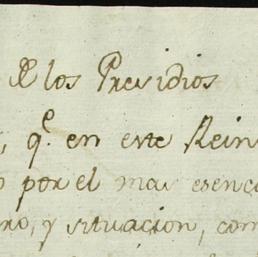 De los Presidios
, q.e en este Rein
o por el mas esenc
ro, y situacion, com